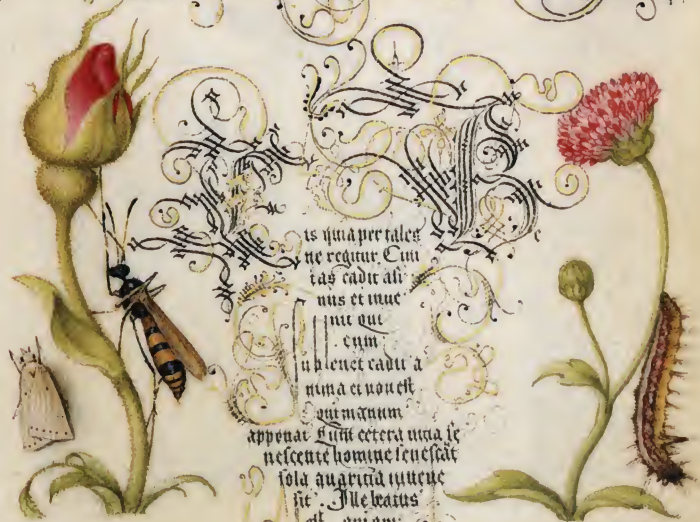 is quia per tales
ne regitur. Cui
tas cadit ali
nus et inue
nit qui
eum
subleuet cadit a
nima et non est
qui manum
apponat. Cum cetera uitia se
nescente homine senescāt
sola auaritia iuuene
sit. Ille beatus
est